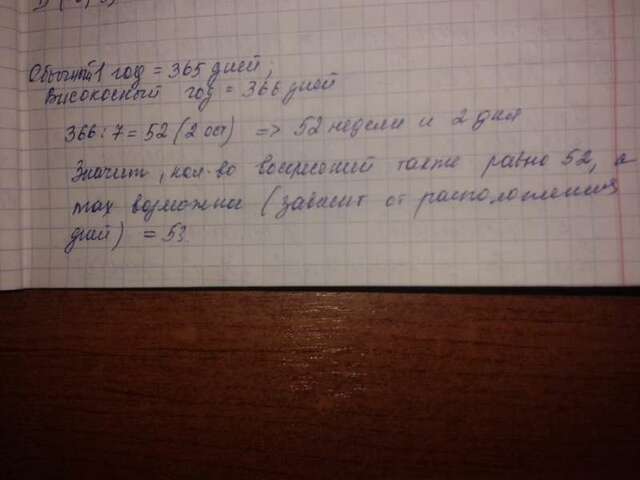 Обычный 1 год = 365 дней;
Високосный год = 366 дней
366 : 7 = 52 (2 ост) => 52 недели и 2 дня
Значит, кол-во воскресений также равно 52, а
max возможное (зависит от расположения
дней) = 53.